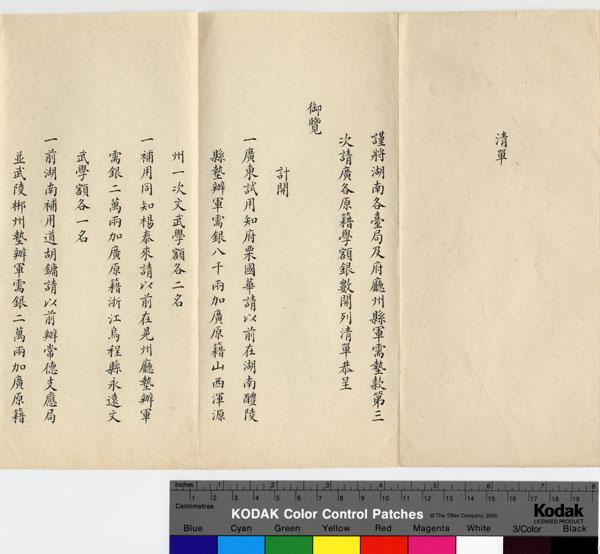 清單
謹將湖南各臺局及府廳州縣軍需墊款第三
次請廣各原籍學額銀數開列清單恭呈
御覽
計開
一廣東試用知府栗國華請以前在湖南醴陵
縣墊辦軍需銀八千兩加廣原籍山西渾源
州一次文武學額各二名
一補用同知楊泰來請以前在晃州廳墊辦軍
需銀二萬兩加廣原籍浙江烏程縣永遠文
武學額各一名
一前湖南補用道胡鏞請以前辦常德支應局
並武陵郴州墊辦軍需銀二萬兩加廣原籍
Inches 1 2 3 4 5 6 7 8
Centimetres 1 2 3 4 5 6 7 8 9 10 11 12 13 14 15 16 17 18 19
KODAK Color Control Patches © The Tiffen Company, 2000 Kodak
LICENSED PRODUCT
Blue Cyan Green Yellow Red Magenta White 3/Color Black